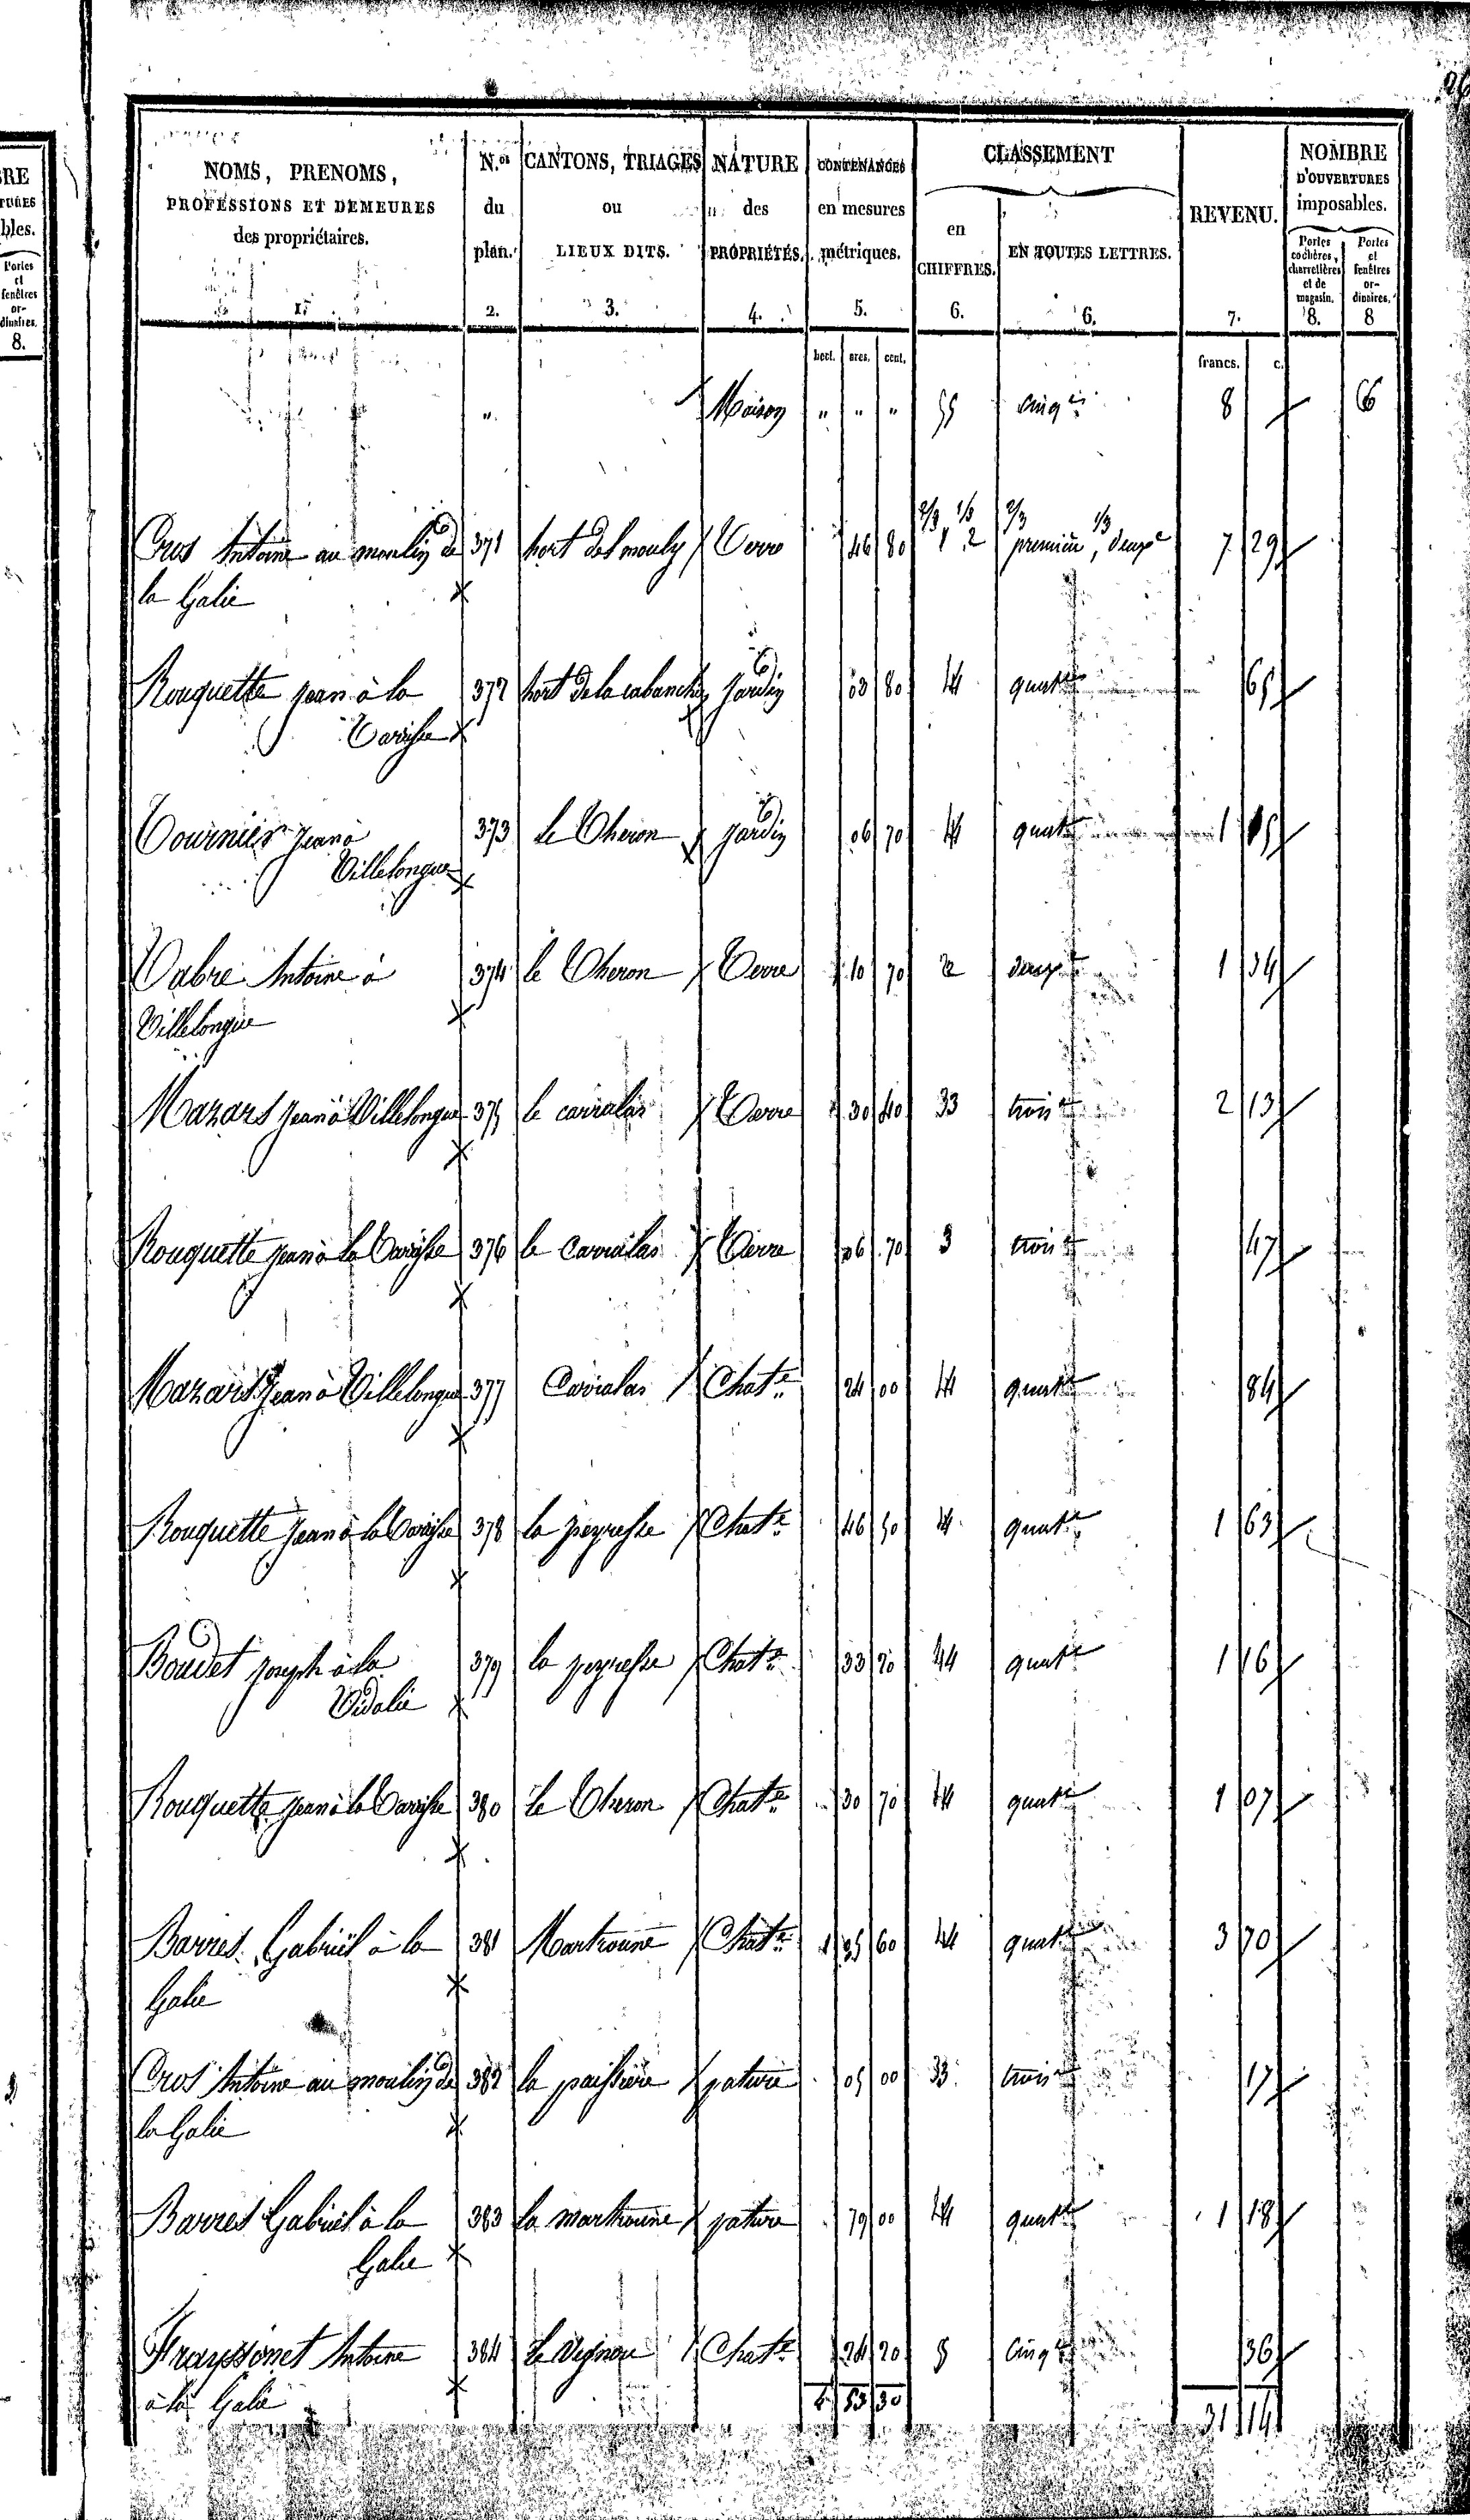 NOMS, PRENOMS,
PROFESSIONS ET DEMEURES
des propriétaires.
1.
N.os
du
plan.
2.
CANTONS, TRIAGES
ou
LIEUX DITS.
3.
NATURE
des
PROPRIÉTÉS.
4.
CONTENANCES
en mesures
métriques.
5.
CLASSEMENT
en
CHIFFRES.
6.
EN TOUTES LETTRES.
6.
REVENU.
7.
NOMBRE
D'OUVERTURES
imposables.
Portes
cochères,
charretières
et de
magasin.
8.
Portes
et
fenêtres
or-
dinaires.
8
hect. ares. cent. francs. c.
" Maison " " " 55 cinq.e 8 6
Cros Antoine au moulin de 371 hort del mouly Terre 46 80 2/3 1/3 1 . 2 2/3 première, 1/3 deuxe 7 29
la Galie
Rouquette Jean à la 372 hort de la cabanche Jardin 03 80 4 quate 65
Tournier Jean à 373 le Theron Jardin 06 70 4 quate 1
Villelongue
Vabre Antoine à 374 le Theron Terre 10 70 2 deuxe 1 34
Villelongue
Mazars Jean à Villelongue 375 le carralas Terre 30 40 33 troise 2 13
Rouquette Jean à la 376 le Carralas Terre 06 70 3 troise 47
Mazars Jean à Villelongue 377 Carralas Chate 24 00 4 quate 84
Rouquette Jean à la 378 la peyresse Chate 46 50 4 quate 1 63
Boudet Joseph à la 379 la peyresse Chate 33 20 44 quate 1 16
Vidalie
Rouquette Jean à la 380 le Theron Chate 30 70 4 quate 1 07
Barres Gabriel à la 381 Martrounne Chate 1 35 60 44 quate 3 70
Galie
Cros Antoine au moulin de 382 la paissière pature 05 00 33 troise 17
la Galie
Barres Gabriel à la 383 la martrounne pature 79 00 4 quate 1 18
Galie
Frayssonet Antoine 384 le Vignou Chate 24 20 5 cinqe 36
à la Galie
53 30 31 14